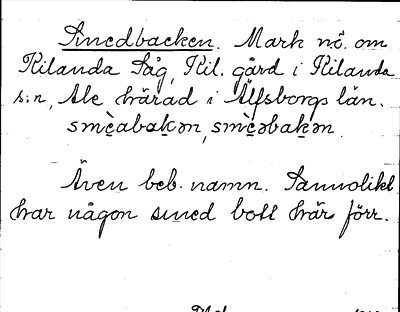 Smedbacken. Mark nö. om
Kilanda Såg, Kil. gård i Kilanda
s:n, Ale härad i Älfsborgs län.
smèabakən, smèəbakən
Även beb. namn. Sannolikt
har någon smed bott här förr.